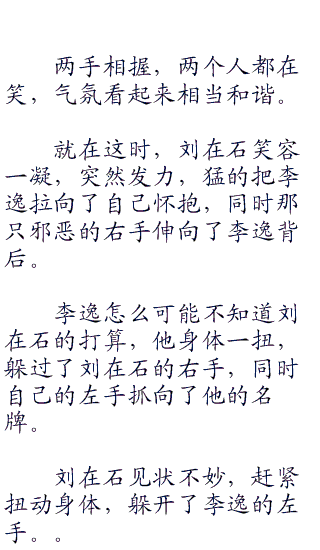 两手相握，两个人都在
笑，气氛看起来相当和谐。
就在这时，刘在石笑容
一凝，突然发力，猛的把李
逸拉向了自己怀抱，同时那
只邪恶的右手伸向了李逸背
后。
李逸怎么可能不知道刘
在石的打算，他身体一扭，
躲过了刘在石的右手，同时
自己的左手抓向了他的名
牌。
刘在石见状不妙，赶紧
扭动身体，躲开了李逸的左
手。。